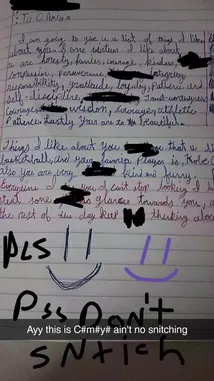 : To C
I am going to give u a list of things I like
about you & one obvious I like about
u are honesty, fearless, courage, kindness,
compassion, Perseverance, integrity
responsibility, gratitude, loyalty, Patience and
self-discipline, Trust-worthyness
Courage, wisdom, courage, athletic
Patience. Lastly your are to be Beautiful.
Things I like about you that u li
basketball, and your favorite Player is, Kobe
also you are, very kind and funny.
Everyone I you I can't stop looking I w
steal some glances towards you, a
the rest of the day keep thinking abou
PLS
Pss Don't
Ayy this is C#m#y# ain't no snitching
sNtich